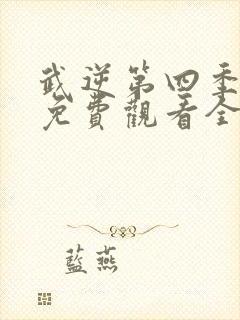 武逆第四季
免費觀看全
藍燕